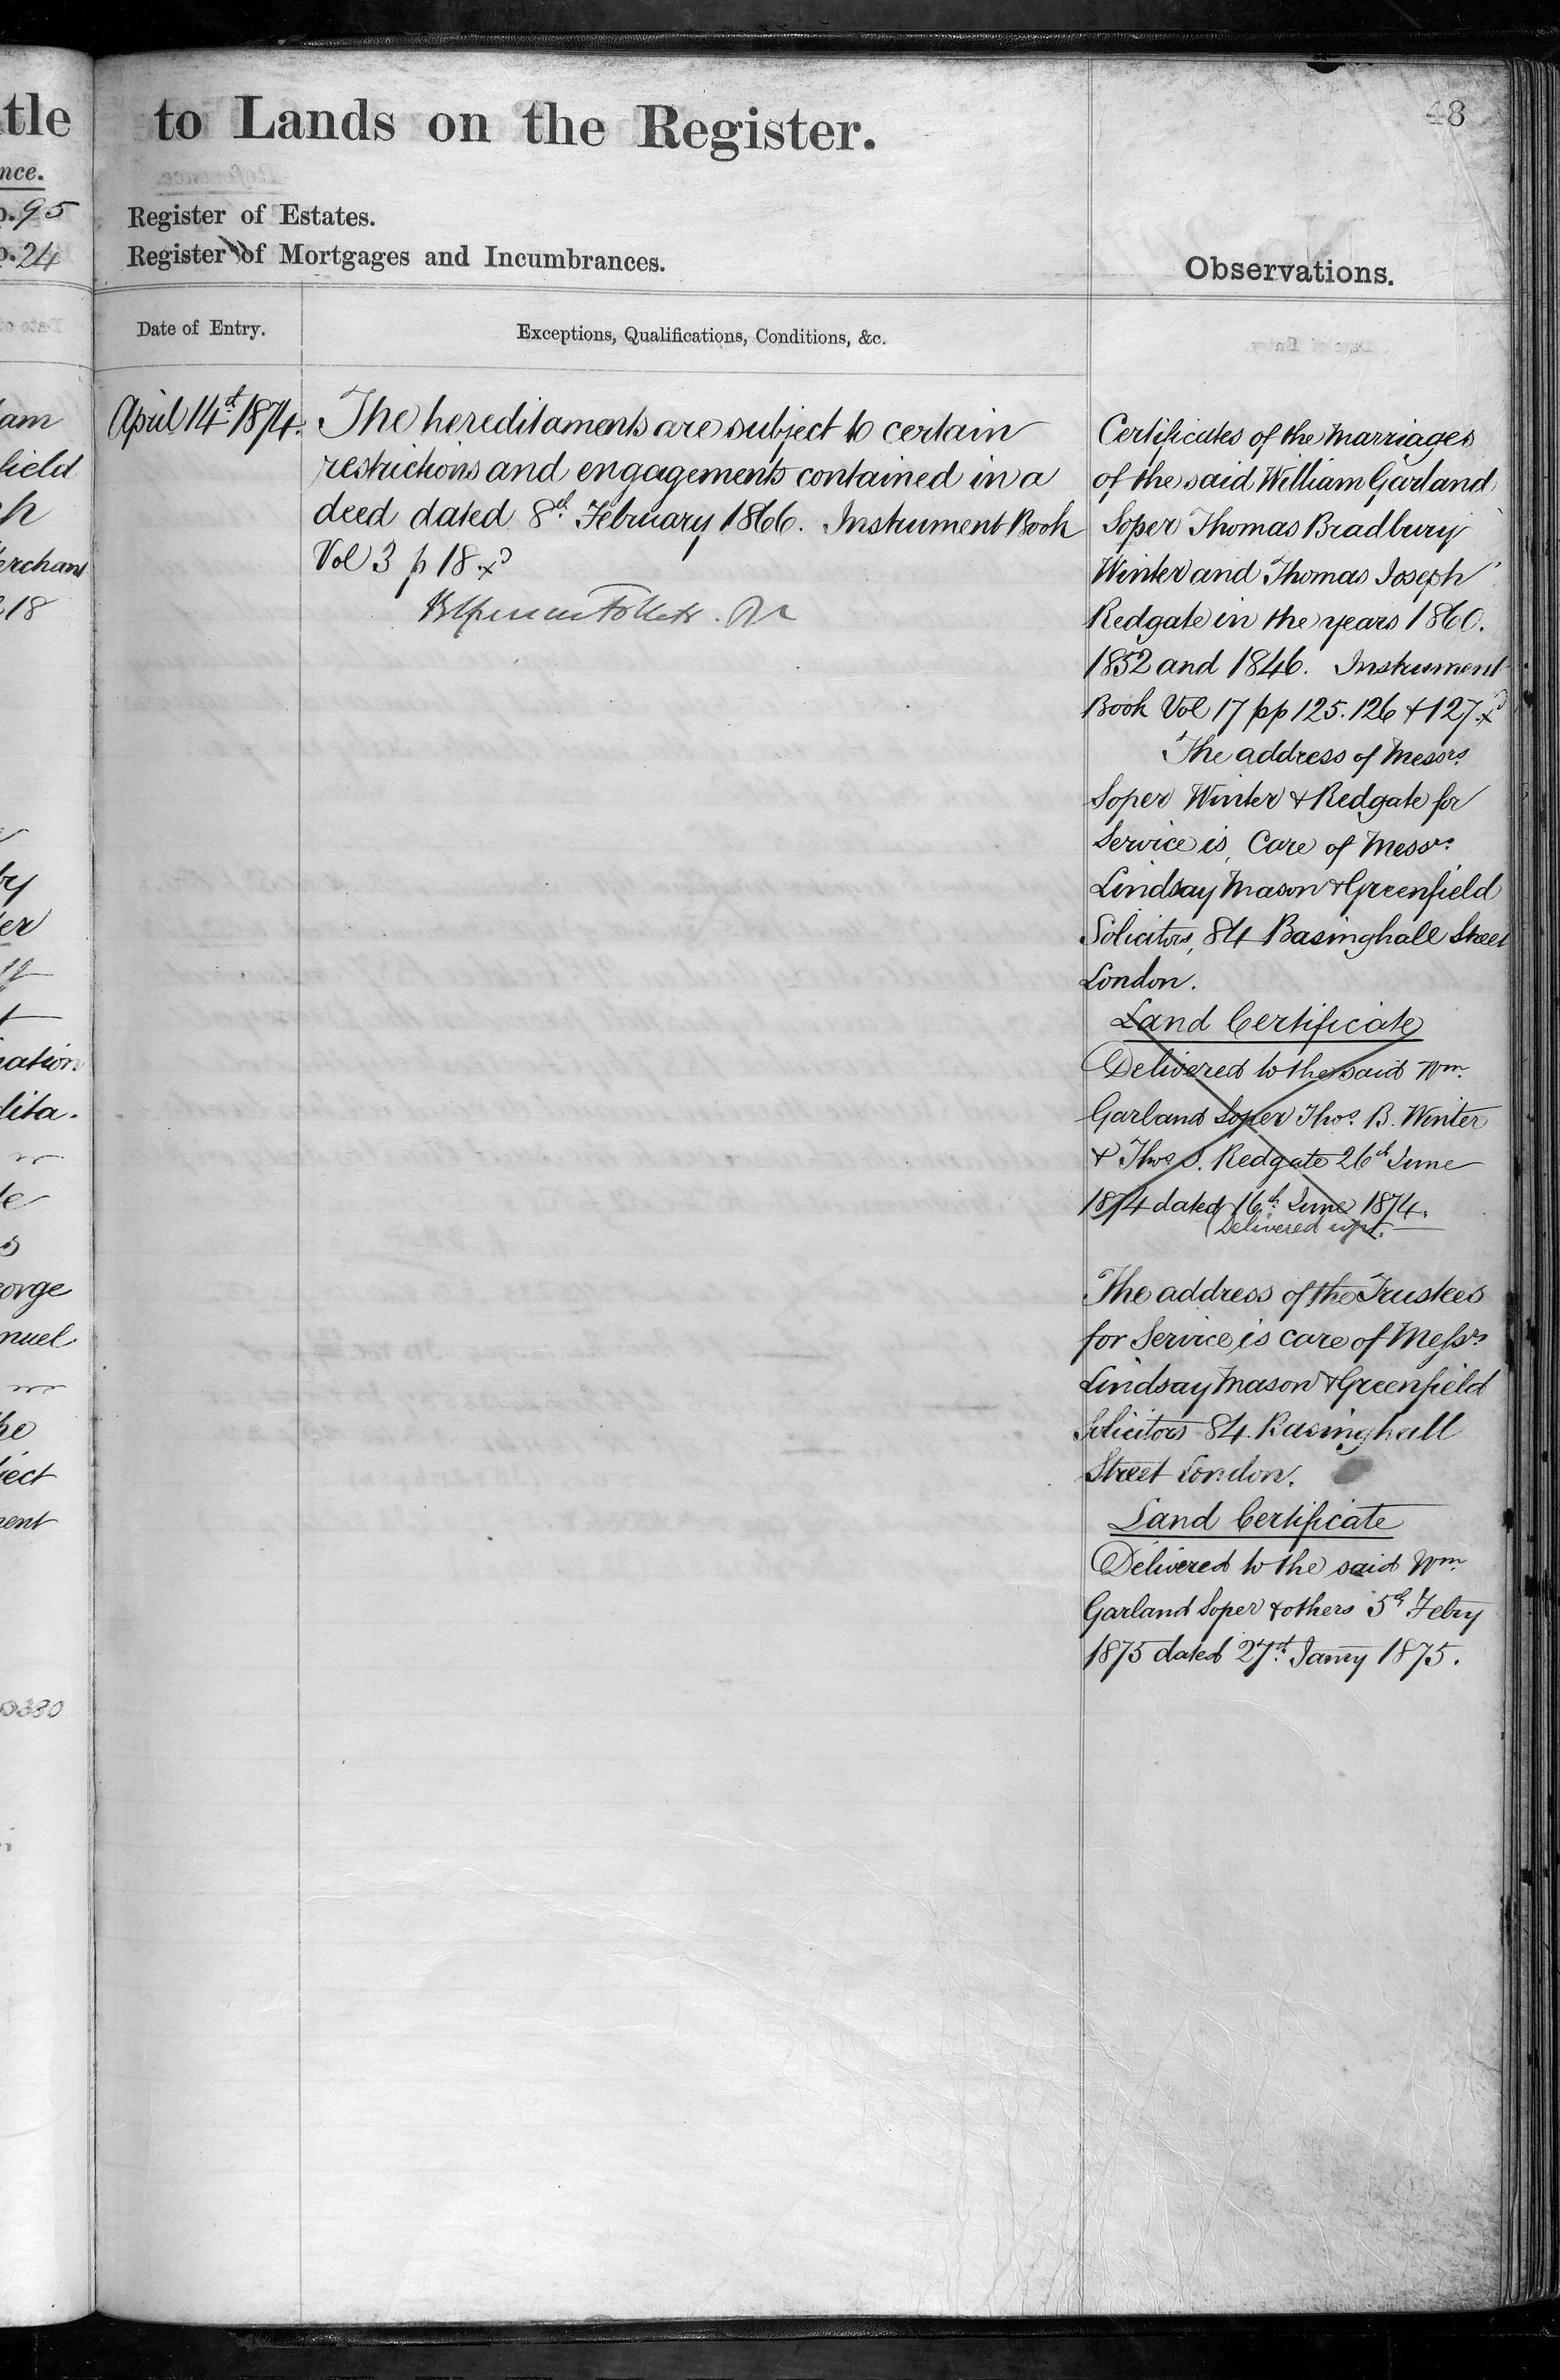 tle
nce.
p. 95
p. 24
am
field
h
erchant
18
by
er
nation
dita-
eorge
nuel
he
ject
ment
0330
to Lands on the Register.
48
Register of Estates.
Register of Mortgages and Incumbrances.
Observations.
Date of Entry.
Exceptions, Qualifications, Conditions, &c.
April 14th 1874.
The hereditaments are subject to certain
restrictions and engagements contained in a
deed dated 8th February 1866. Instrument Book
Vol 3 p 18. xd
Certificates of the Marriages
of the said William Garland
Soper Thomas Bradbury
Winter and Thomas Joseph
Redgate in the years 1860.
1852 and 1846. Instrument
Book Vol 17 pp 125. 126 & 127. xd
The address of Messrs
Soper Winter & Redgate for
Service is, Care of Messrs
Lindsay Mason & Greenfield
Solicitors, 84 Basinghall Street
London.
Land Certificate
Delivered to the said Wm.
Garland Soper Thos. B. Winter
& Thos J. Redgate 26th June
1874 dated 16th June 1874.
(Delivered up).
The address of the Trustees
for Service is care of Messrs
Lindsay Mason & Greenfield
Solicitors 84 Basinghall
Street London.
Land Certificate
Delivered to the said Wm
Garland Soper & others 5th Febry
1875 dated 27th Janry 1875.